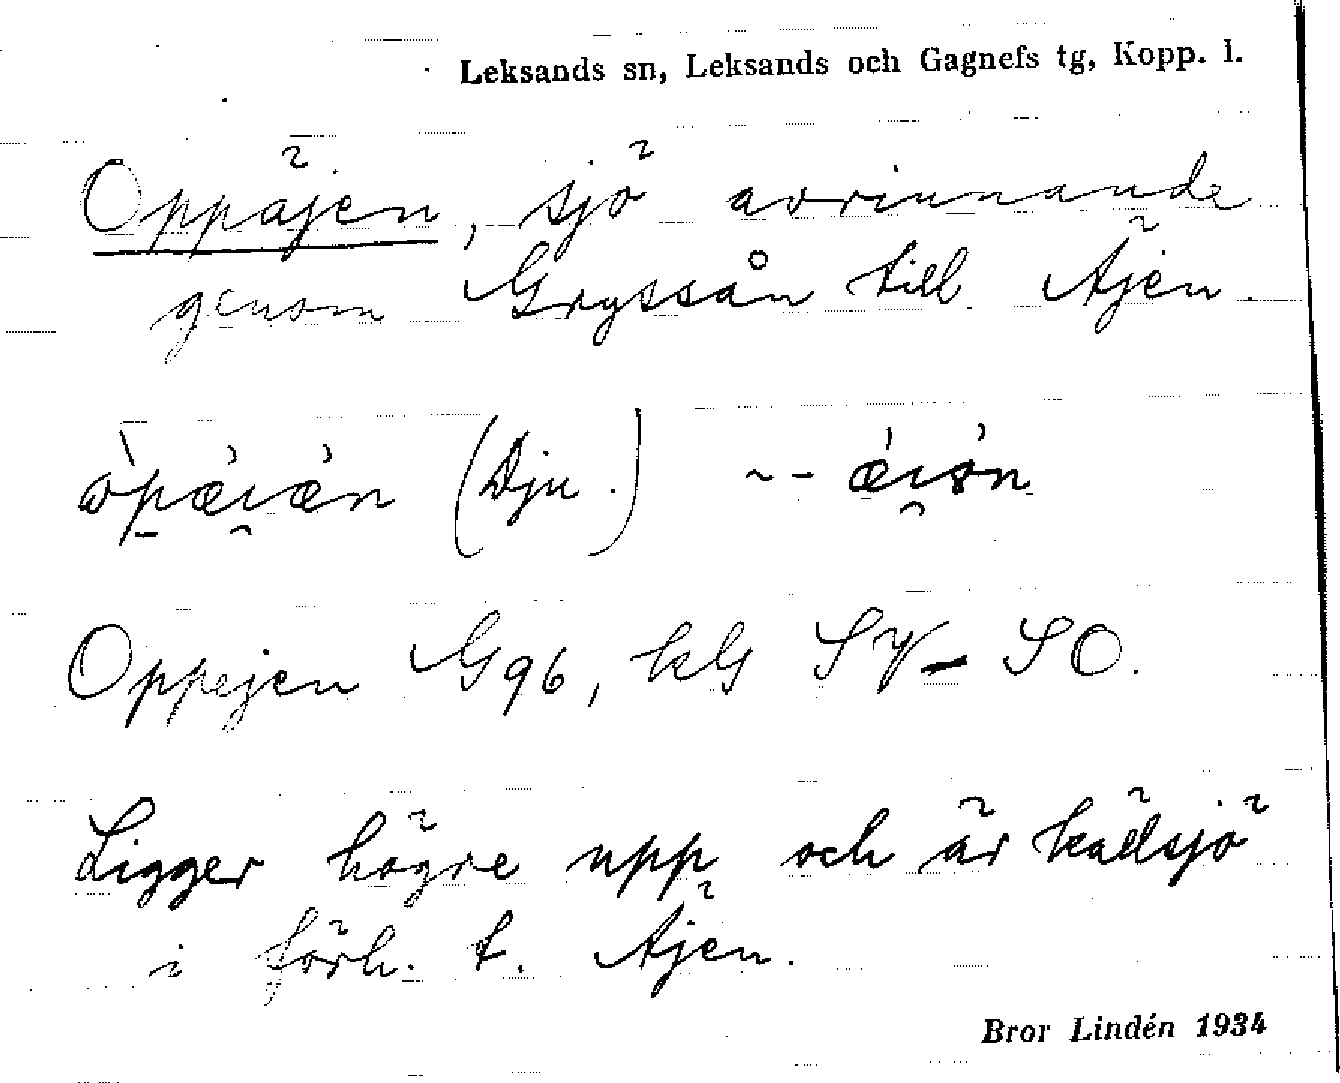 Leksands sn, Leksands och Gagnefs tg, Kopp. l.
Oppäjen, sjö avrinnande
genom Gryssån till Äjen.
(Dju.)
Oppejen G96, kG SV-SO.
Ligger högre upp och är källsjö
i förh. t. Äjen.
Bror Lindén 1934